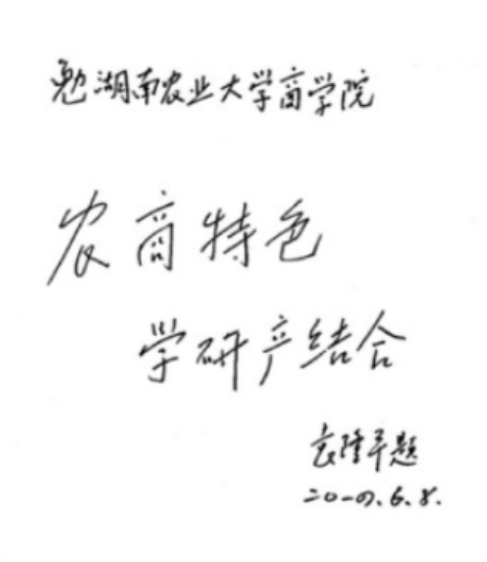 勉湖南农业大学商学院
农商特色
学研产结合
袁隆平题
二〇一〇.6.8.